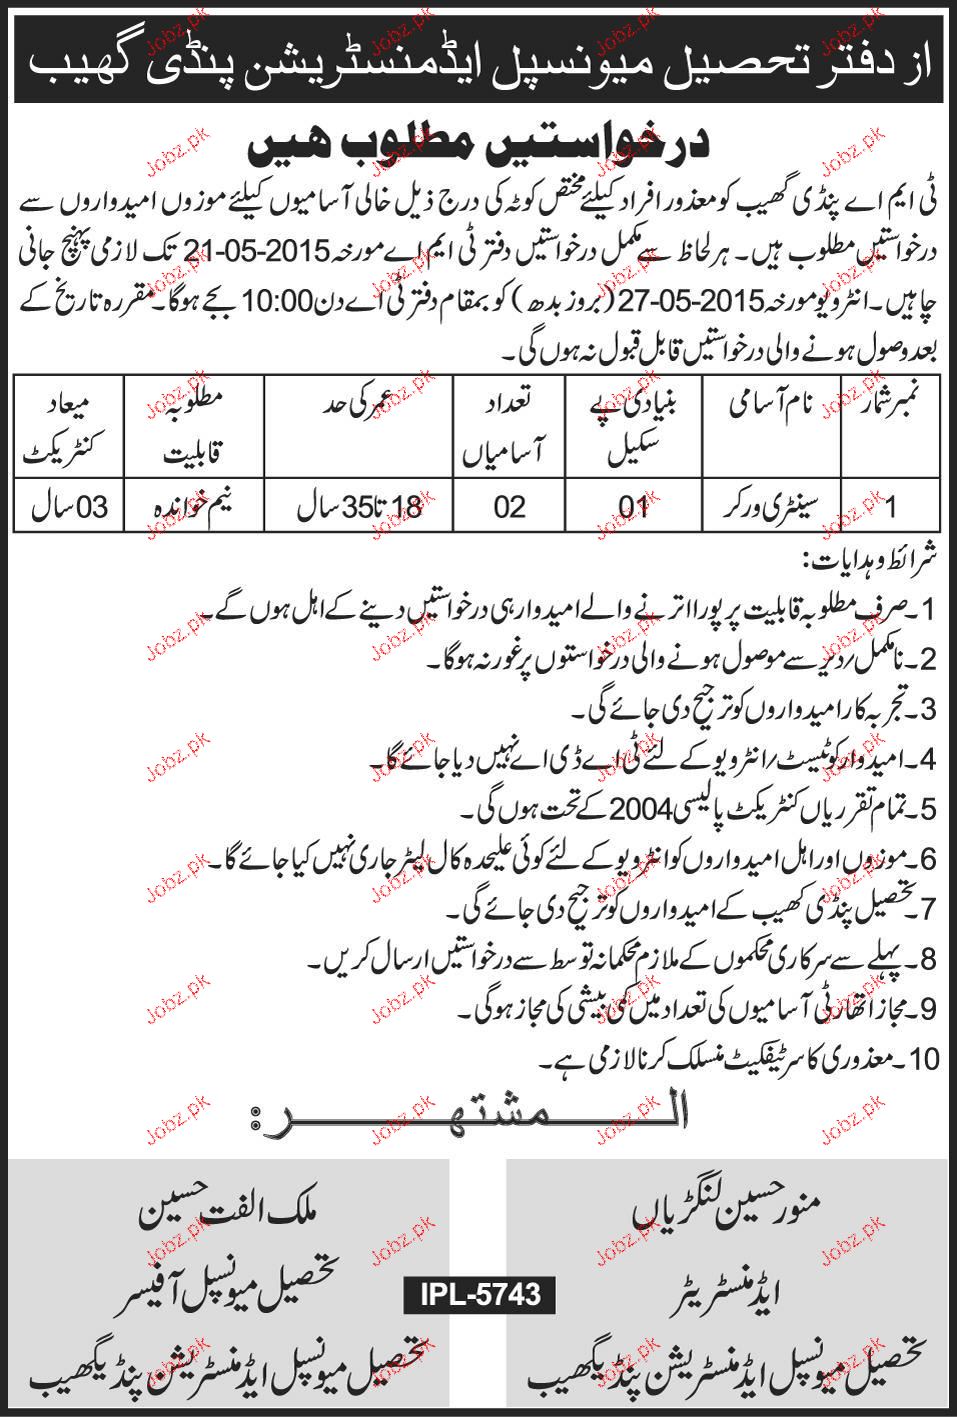 از دفتر تحصیل میونسپل ایڈمنسٹریشن پنڈی گھیب
درخواستیں مطلوب ہیں
ٹی ایم اے پنڈی گھیب کو معذور افراد کیلئے مختص کوٹہ کی درج ذیل خالی آسامیوں کیلئے موزوں امیدواروں سے
درخواستیں مطلوب ہیں۔ ہر لحاظ سے مکمل درخواستیں دفتر ٹی ایم اے مورخہ 2015-05-21 تک لازمی پہنچ جانی
چاہیں۔ انٹرویو مورخہ 2015-05-27 (بروز بدھ) کو بمقام دفتر ٹی اے دن 10:00 بجے ہوگا۔ مقررہ تاریخ کے
بعد وصول ہونے والی درخواستیں قابل قبول نہ ہوں گی۔
نمبر شمار	نام آسامی	بنیادی پے سکیل	تعداد آسامیاں	عمر کی حد	مطلوبہ قابلیت	میعاد کنٹریکٹ
1	سینٹری ورکر	01	02	18 تا 35 سال	نیم خواندہ	03 سال
شرائط و ہدایات:
1۔ صرف مطلوبہ قابلیت پر پورا اترنے والے امیدوار ہی درخواستیں دینے کے اہل ہوں گے۔
2۔ نامکمل/دیر سے موصول ہونے والی درخواستوں پر غور نہ ہوگا۔
3۔ تجربہ کار امیدواروں کو ترجیح دی جائے گی۔
4۔ امیدوار کو ٹیسٹ/انٹرویو کے لئے ٹی اے ڈی اے نہیں دیا جائے گا۔
5۔ تمام تقرریاں کنٹریکٹ پالیسی 2004 کے تحت ہوں گی۔
6۔ موزوں اور اہل امیدواروں کو انٹرویو کے لئے کوئی علیحدہ کال لیٹر جاری نہیں کیا جائے گا۔
7۔ تحصیل پنڈی گھیب کے امیدواروں کو ترجیح دی جائے گی۔
8۔ پہلے سے سرکاری محکموں کے ملازم محکمانہ توسط سے درخواستیں ارسال کریں۔
9۔ مجاز اتھارٹی آسامیوں کی تعداد میں کمی بیشی کی مجاز ہوگی۔
10۔ معذوری کا سرٹیفکیٹ منسلک کرنا لازمی ہے۔
المشتہر:
منور حسین لنگڑیاں
ایڈمنسٹریٹر
تحصیل میونسپل ایڈمنسٹریشن پنڈیگھیب
ملک الفت حسین
تحصیل میونسپل آفیسر
تحصیل میونسپل ایڈمنسٹریشن پنڈیگھیب
IPL-5743
Jobz.pk